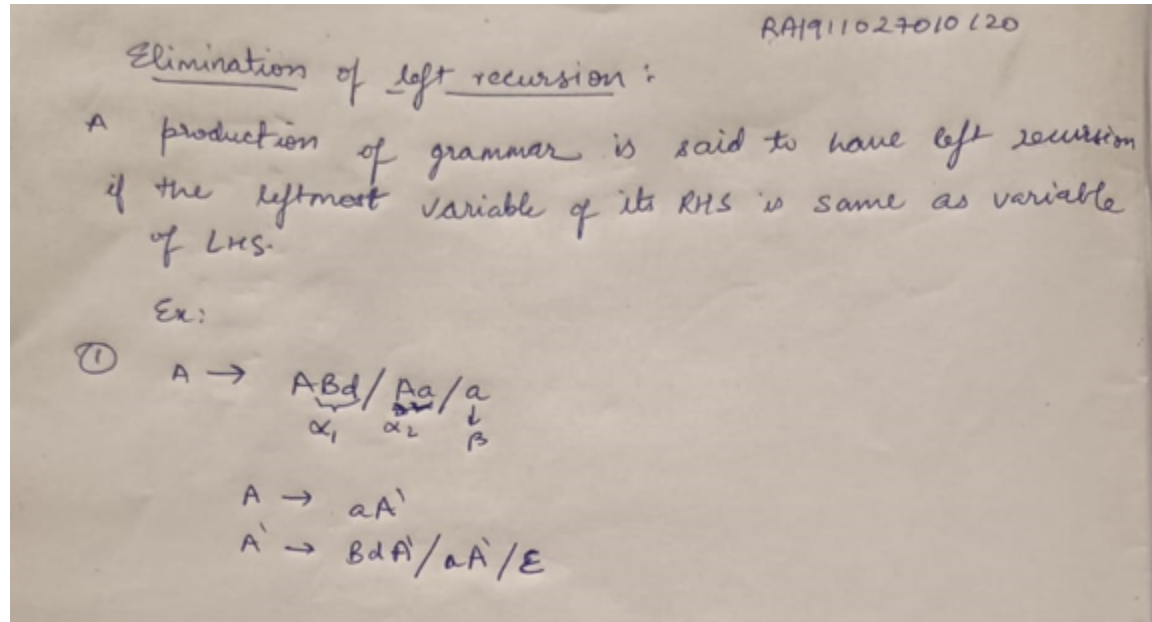 RA1911027010120
Elimination of left recursion :
A production of grammar is said to have left recursion
if the leftmost variable of its RHS is same as variable
of LHS.
Ex:
① A → ABd/Aa/a
α₁ α₂ β
A → aA'
A' → BdA'/aA'/ε